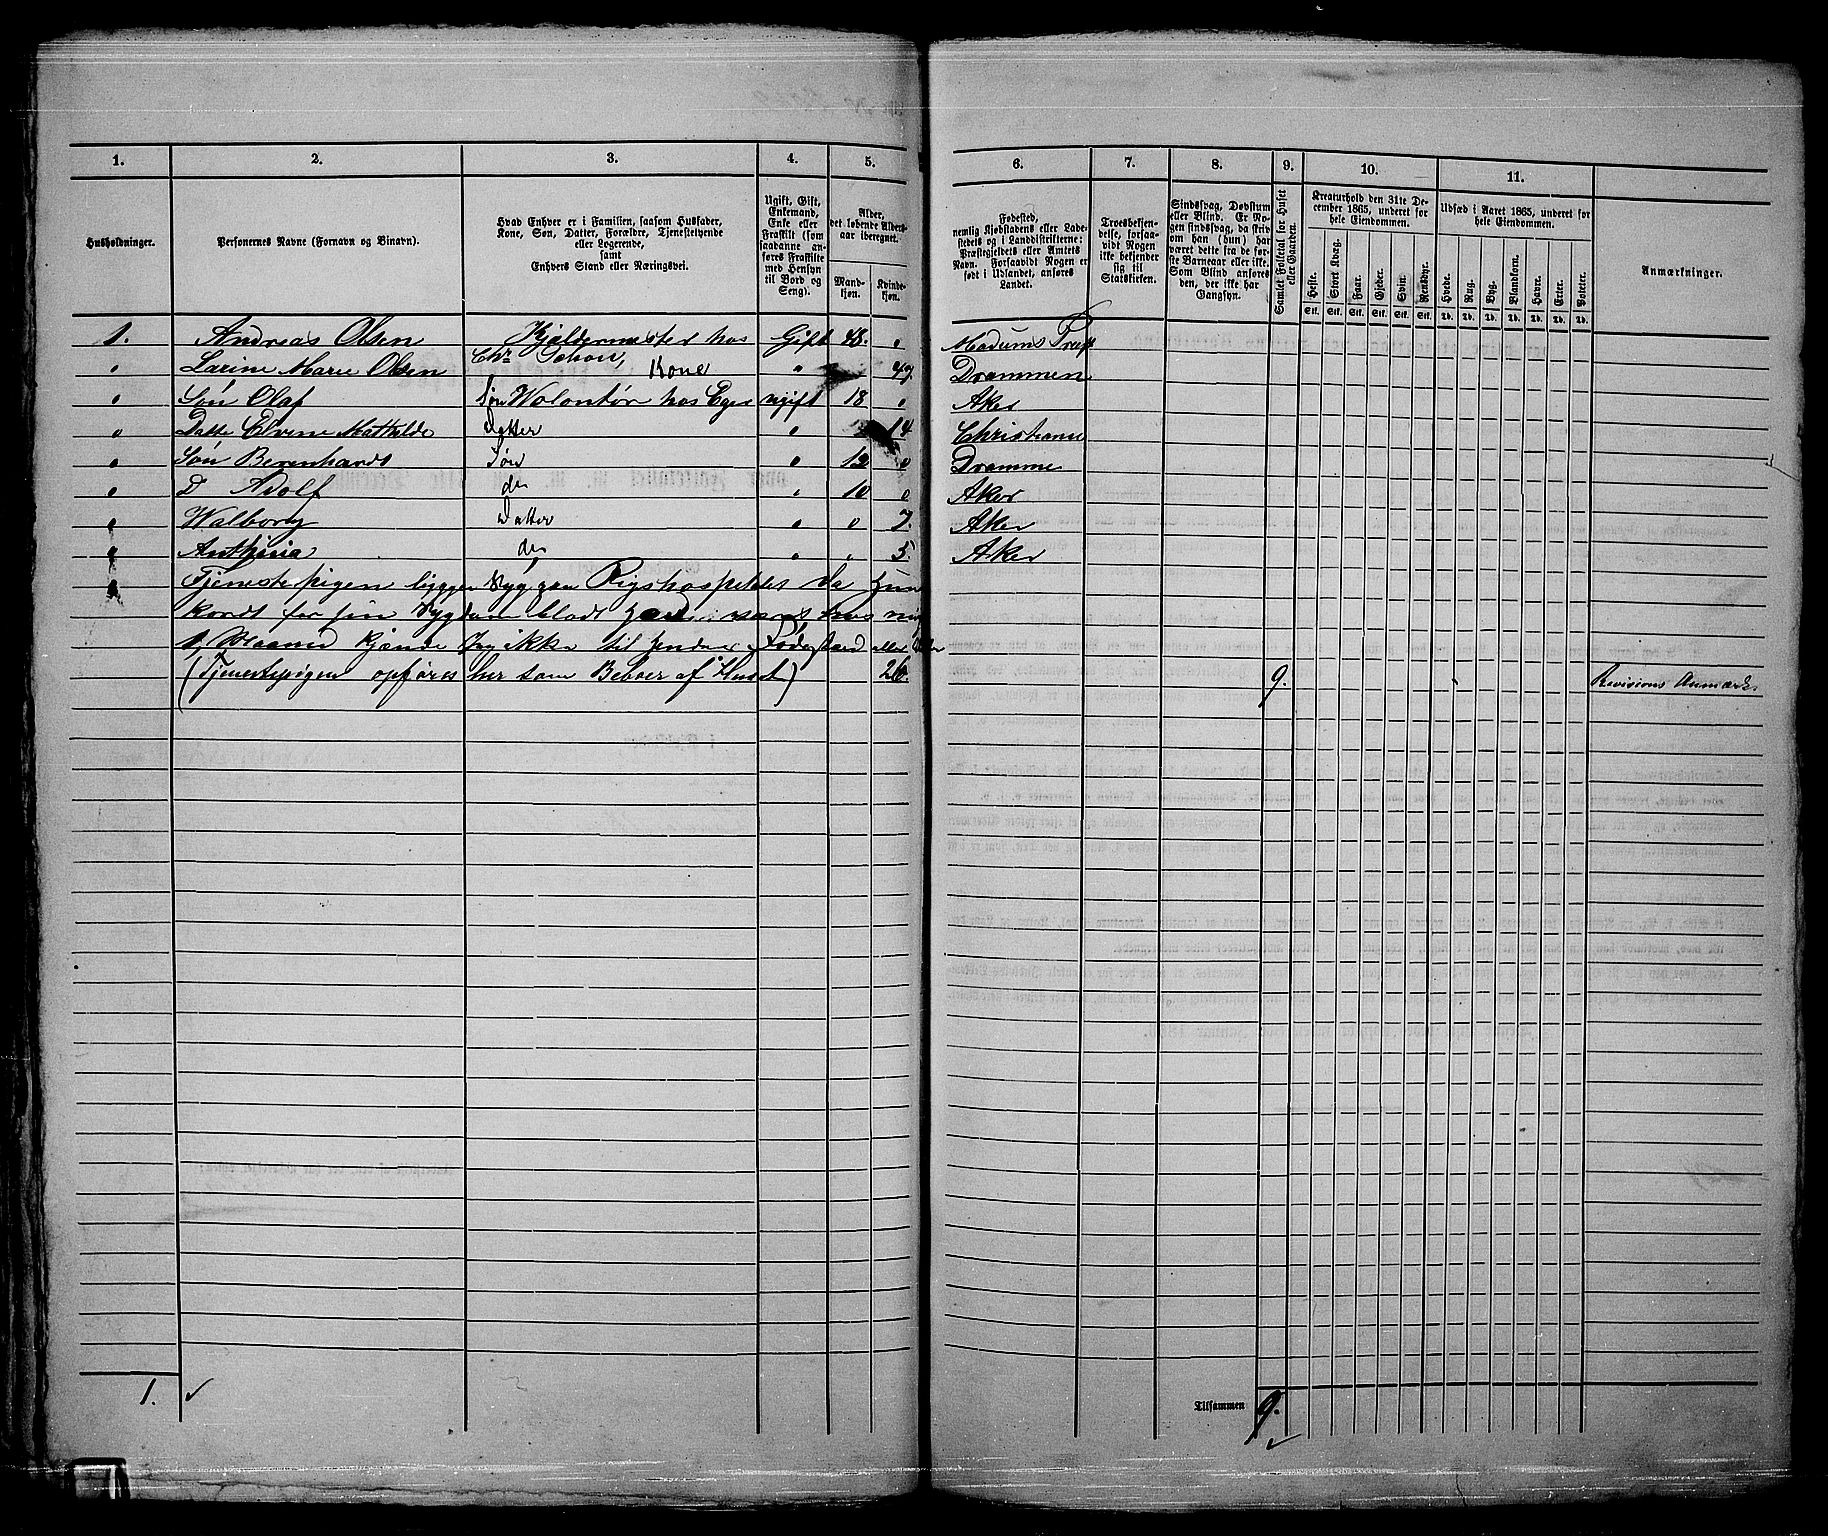 1. 2. 3. 4. 5. 6. 7. 8. 9. 10. 11.
Husholdninger.
Personernes Navne (Fornavn og Binavn).
Hvad Enhver er i Familien, saasom Husfader,
Kone, Søn, Datter, Forældre, Tjenestetyende
eller Logerende,
samt
Enhvers Stand eller Næringsvei.
Ugift, Gift,
Enkemand,
Enke eller
Fraskilt (som
saadanne an-
føres Fraskilte
med Hensyn
til Bord og
Seng).
Alder,
det løbende Alders-
aar iberegnet.
Mand-
kjøn.
Kvinde-
kjøn.
Fødested,
nemlig Kjøbstadens eller Lade-
stedets og i Landdistrikterne:
Præstegjeldets eller Amtets
Navn. Forsaavidt Nogen er
født i Udlandet, anføres
Landet.
Troesbekjen-
delse, forsaa-
vidt Nogen
ikke bekjender
sig til
Statskirken.
Sindssvag, Døvstum
eller Blind. Er No-
gen sindssvag, da skriv
om han (hun) har
været dette fra de før-
ste Barneaar eller ikke.
Som Blind anføres
den, der ikke har
Gangsyn.
Samlet Folketal for Huset
eller Gaarden.
Kreaturhold den 31te De-
cember 1865, underet for
hele Eiendommen.
Heste. Stort Kvæg. Faar. Gjeder. Svin. Rensdyr.
Stk. Stk. Stk. Stk. Stk. Stk.
Udsæd i Aaret 1865, underet for
hele Eiendommen.
Hvede. Rug. Byg. Blandkorn. Havre. Erter. Poteter.
Td. Td. Td. Td. Td. Td. Td.
Anmærkninger.
1. Andreas Olsen Kjældermester hos Gift 48. " Modums
Chr Schou,
" Larine Marie Olsen Kone " 47. Drammen
" Søn Olaf Søn Wolontør hos Eger ugift 18 " Aker
" Datte Elvene Mathilde Datter " 14 Christiania
" Søn Berenhardt Søn " 12 " Dramme
" D Adolf do " 10 " Aker
" Walborg Datter " " 7. Aker
" Anthinia do " " 5. Aker
" Tjenestepigen ligger Syg paa Rigshospitalet da Hun
kordt for sin Sygdom
1 Maaned kjænder Jeg ikke til hendes Fødested eller
(Tjenestepigen opføres her som Beboer af Huset) 26. 9. Revisions Anmærk.
1. Tilsammen 9.